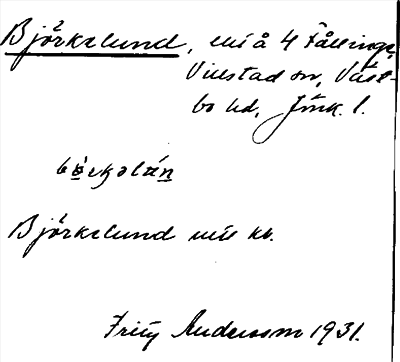 Björkelund, en å 4 Fållinge,
Villstad sn, Väst-
bo hd, Jönk. l.
Björkelund enl kb.
Fritz Andersson 1931.